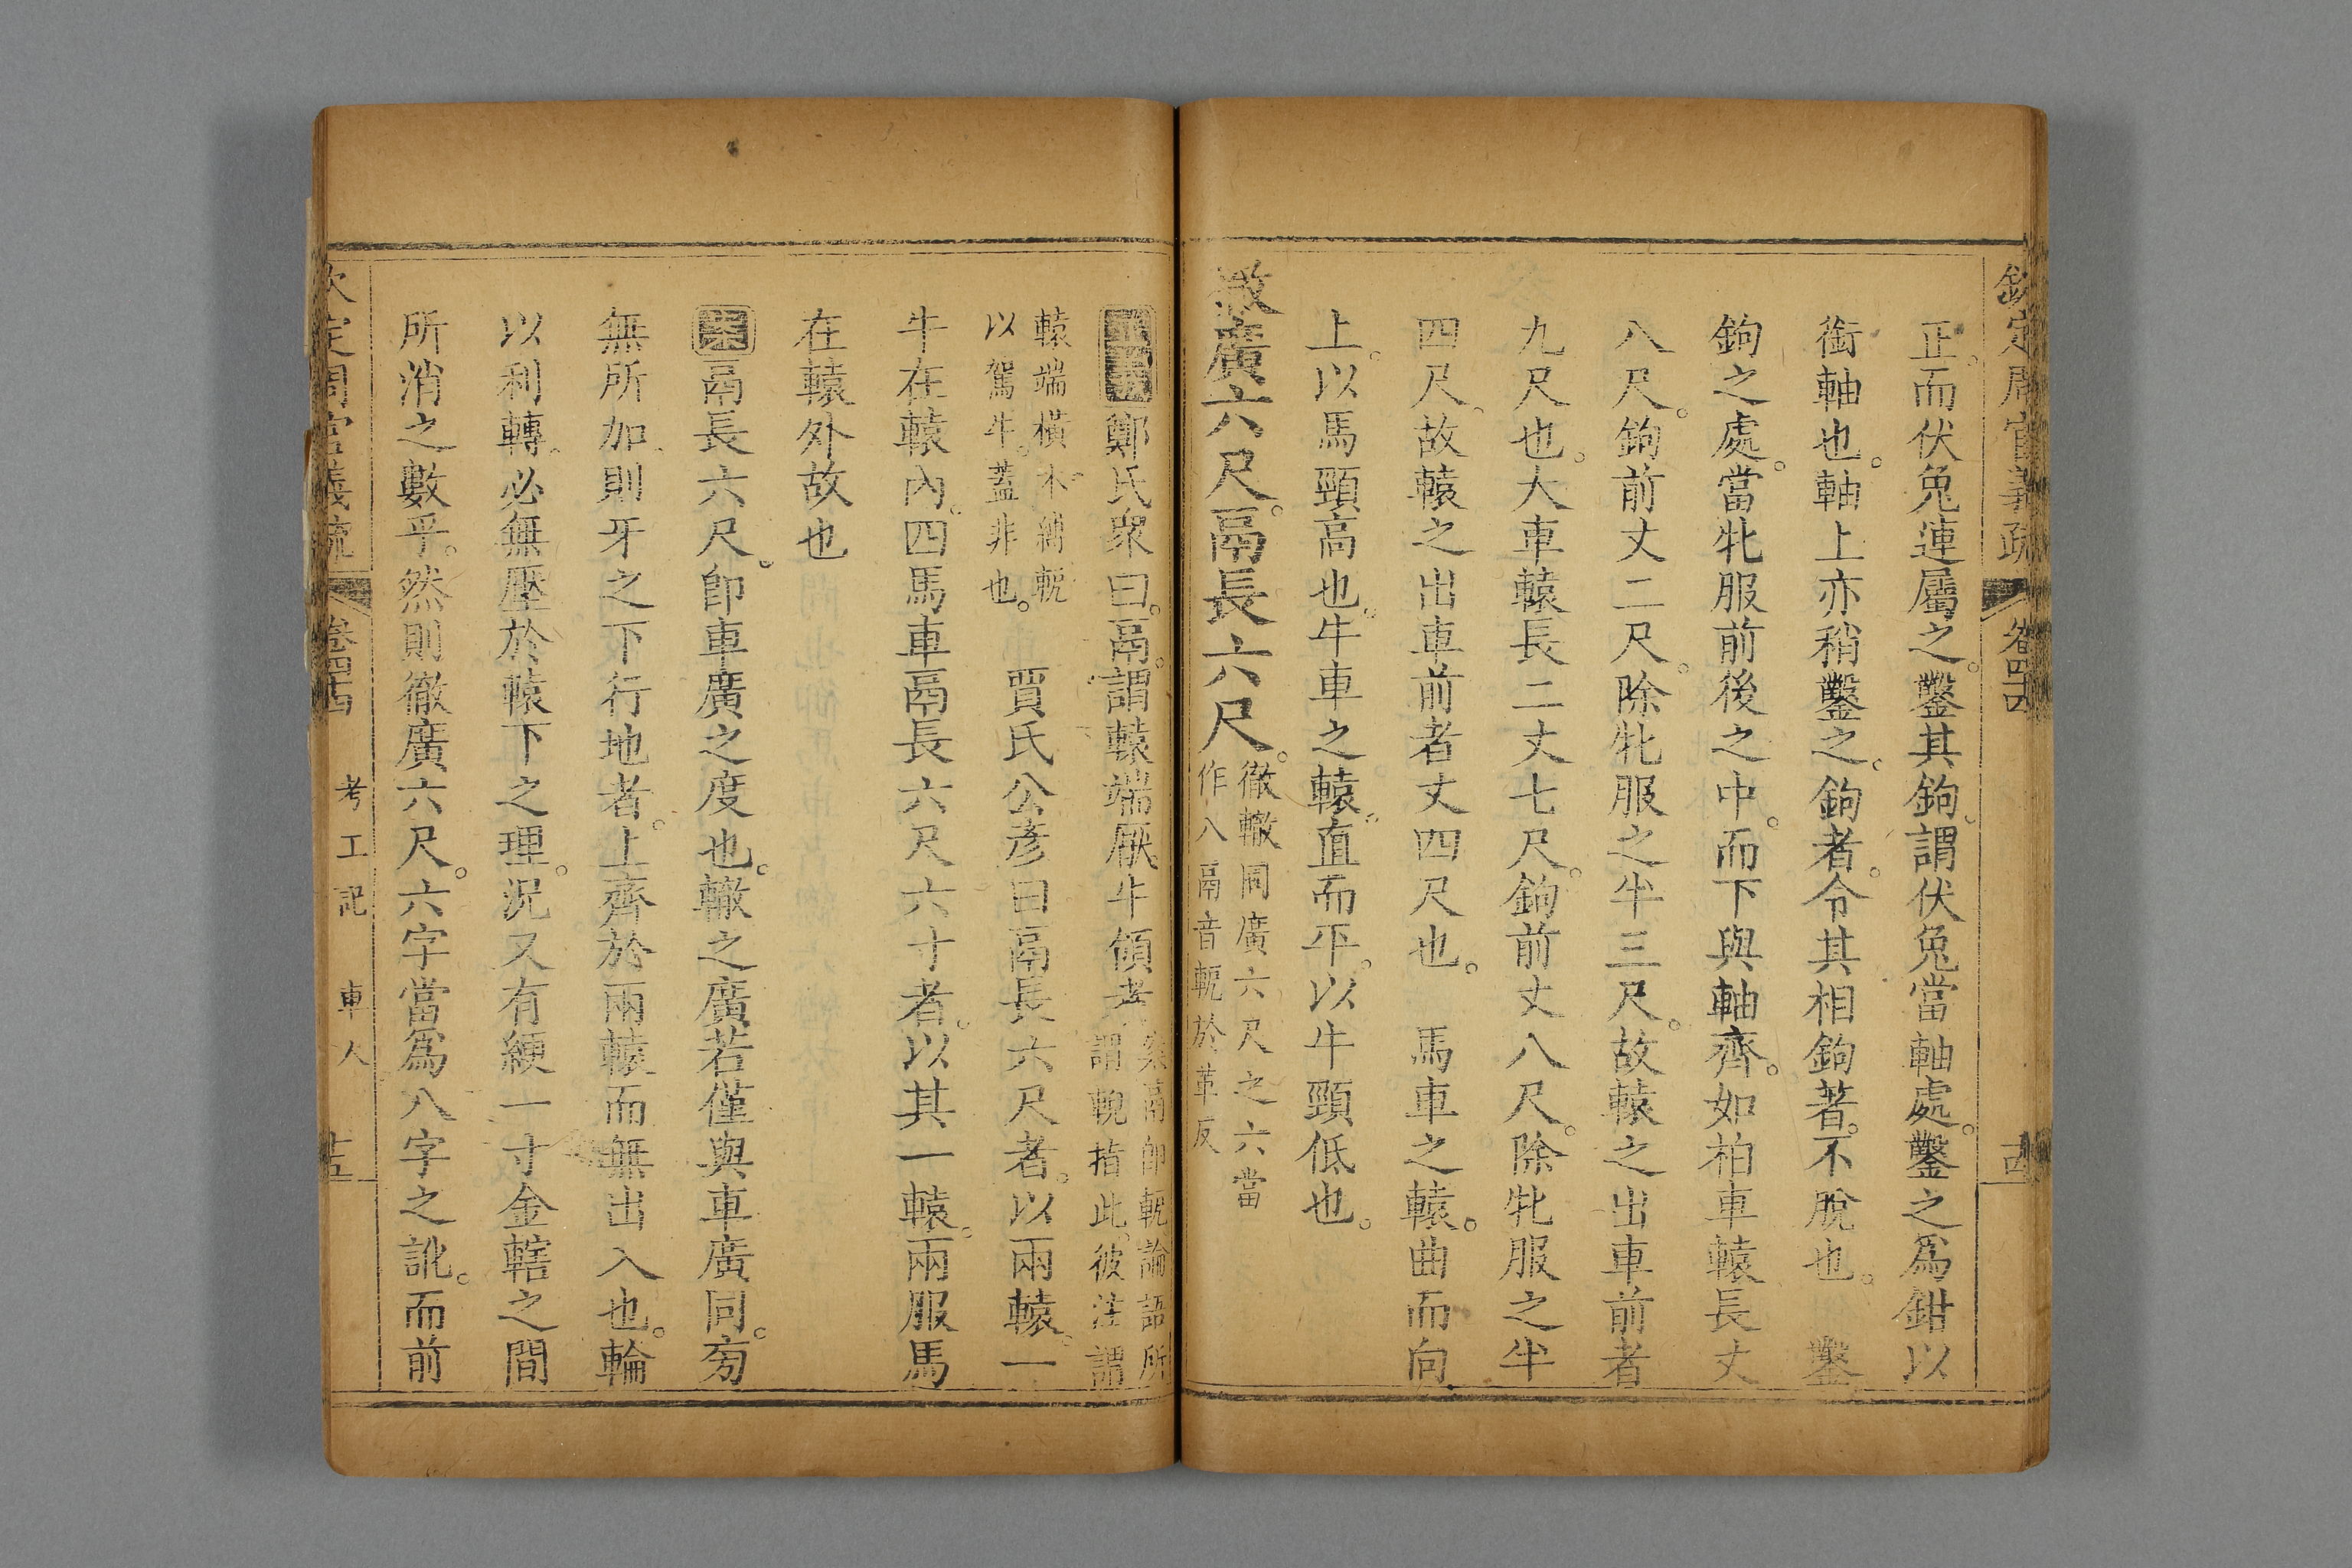 欽定周官義疏 卷四十四 十四
正。而伏兔連屬之。鑿其鉤。謂伏兔當軸處。鑿之爲鉗以
銜軸也。軸上亦稍鑿之。鉤者。令其相鉤著。不脫也。 鑿
鉤之處。當牝服前後之中。而下與軸齊。如柏車轅長丈
八尺。鉤前丈二尺。除牝服之半三尺。故轅之出車前者
九尺也。大車轅長二丈七尺。鉤前丈八尺。除牝服之半
四尺。故轅之出車前者丈四尺也。 馬車之轅。曲而向
上。以馬頸高也。牛車之轅。直而平。以牛頸低也。
徹廣六尺。鬲長六尺。
徹轍同廣六尺之六當
作八鬲音軛於革反
鄭氏衆曰。鬲。謂轅端厭牛領者
案鬲卽軛論語所
謂輗指此。彼注謂
轅端橫木。縛軛
以駕牛。蓋非也。
賈氏公彦曰鬲長六尺者。以兩轅。一
牛在轅內。四馬車鬲長六尺六寸者。以其一轅。兩服馬
在轅外故也
案鬲長六尺。卽車廣之度也。轍之廣若僅與車廣同。旁
無所加。則牙之下行地者。上齊於兩轅而無出入也。輪
以利轉。必無壓於轅下之理。況又有綆一寸金轄之間
所消之數乎。然則徹廣六尺。六字當爲八字之訛。而前
欽定周官義疏 卷四十四 考工記 車人 十五